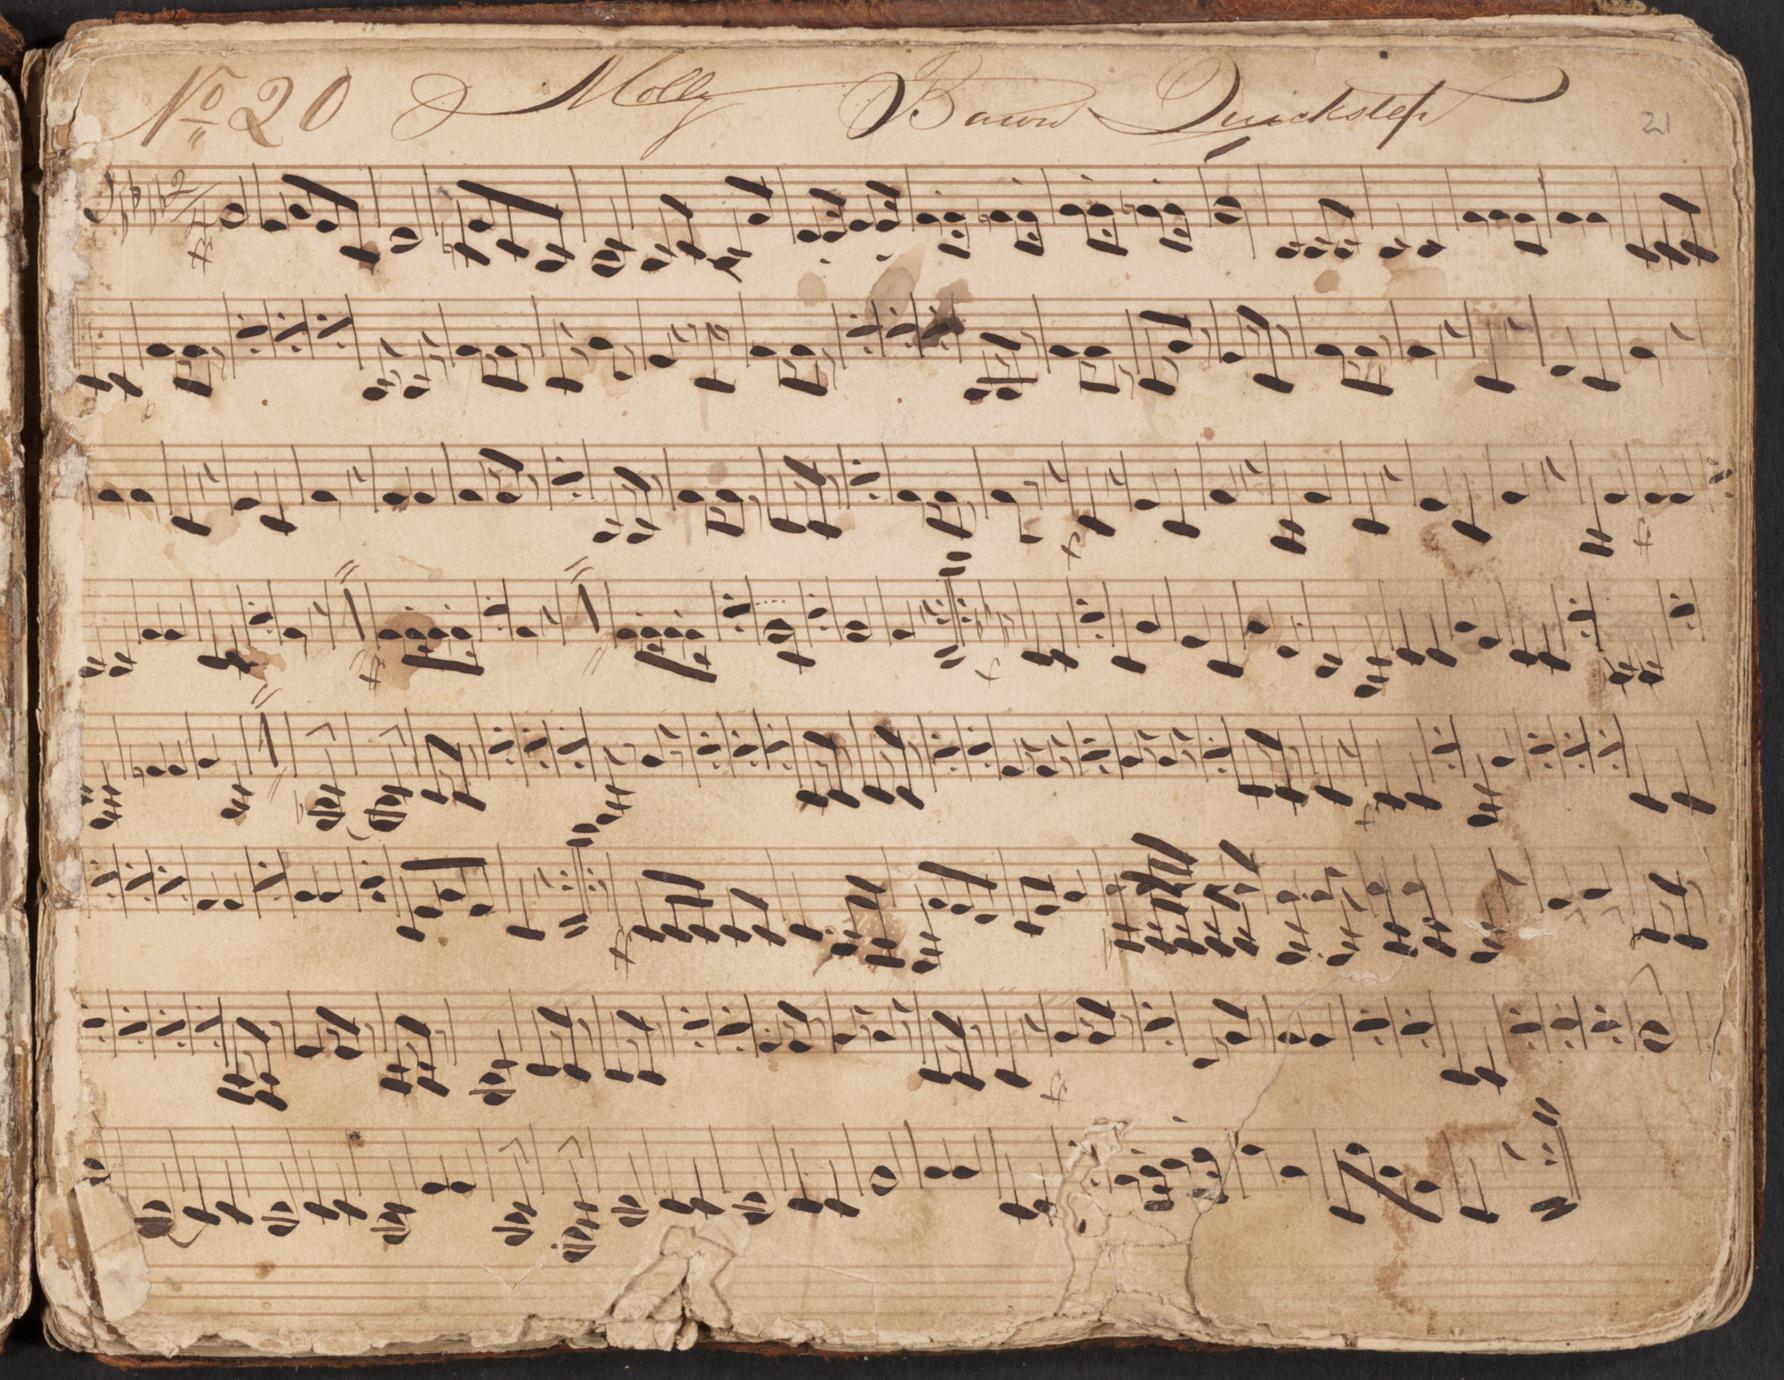 No 20 Molly Bawn Quickstep
21